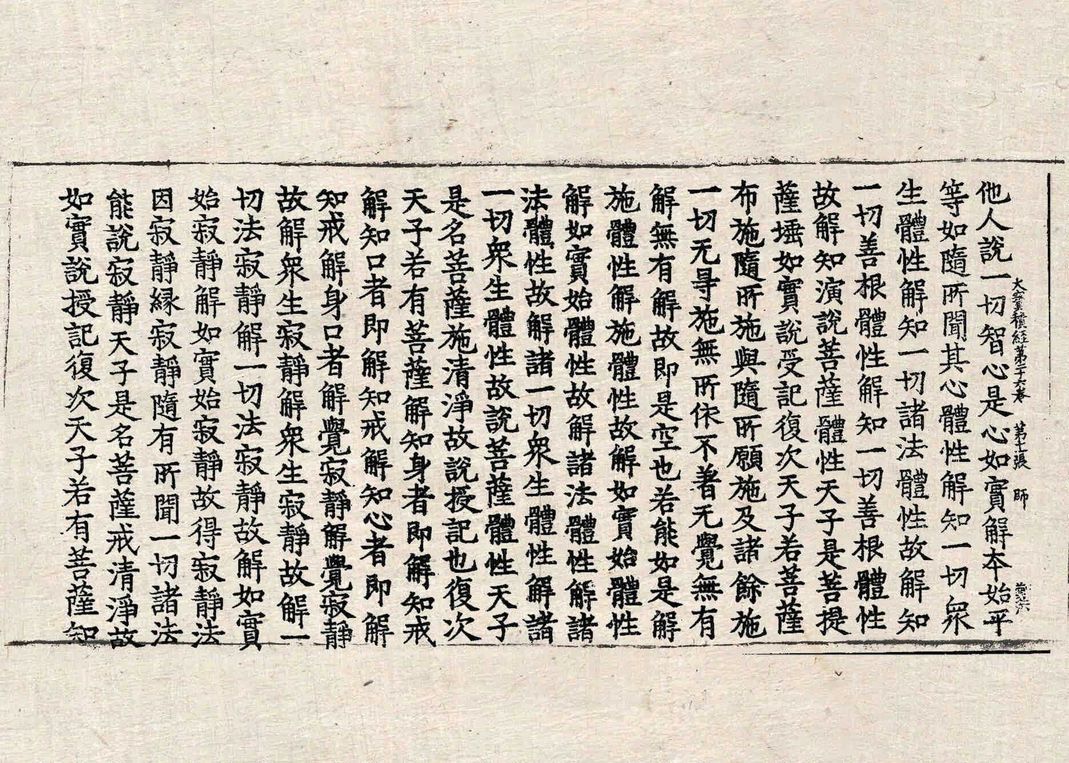 他人說一切智心是心如實解本始平
大寶積經第二十六卷 第十二張 師
等如隨所聞其心體性解知一切衆
生體性解知一切諸法體性故解知
一切善根體性解知一切善根體性
故解知演說菩薩體性天子是菩提
薩埵如實說受記復次天子若菩薩
布施隨所施與隨所願施及諸餘施
一切无㝵施無所依不著无覺無有
解無有解故即是空也若能如是解
施體性解施體性故解如實始體性
解如實始體性故解諸法體性解諸
法體性故解諸一切衆生體性解諸
一切衆生體性故說菩薩體性天子
是名菩薩施清淨故說授記也復次
天子若有菩薩解知身者即解知戒
解知口者即解知戒解知心者即解
知戒解身口者解覺寂靜解覺寂靜
故解衆生寂靜解衆生寂靜故解一
切法寂靜解一切法寂靜故解如實
始寂靜解如實始寂靜故得寂靜法
因寂靜緣寂靜隨有所聞一切諸法
能說寂靜天子是名菩薩戒清淨故
如實說授記復次天子若有菩薩知